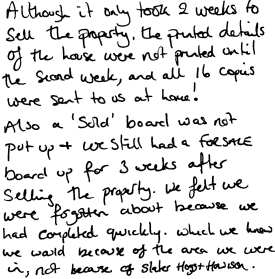 Although it only took 2 weeks to
sell the property, the printed details
of the house were not printed until
the second week, and all 16 copies
were sent to us at home!
Also a 'Sold' board was not
put up + we still had a FOR SALE
board up for 3 weeks after
selling the property. We felt we
were forgotten about because we
had completed quickly. Which we knew
we would because of the area we were
in, not because of Slater Hogg + Howison.